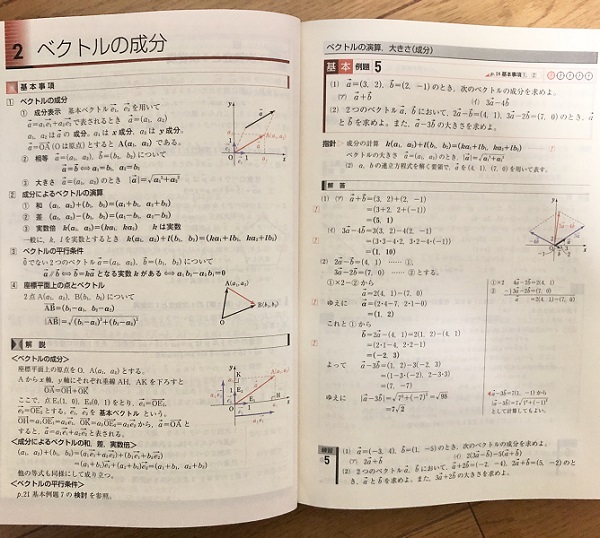 2 ベクトルの成分
基本事項
1 ベクトルの成分
① 成分表示 基本ベクトル e₁, e₂ を用いて
a=a₁e₁+a₂e₂ で表されるとき a=(a₁, a₂)
a₁, a₂ は a の 成分, a₁ は x 成分, a₂ は y 成分。
a=OA (O は原点) とすると A(a₁, a₂) である。
② 相等 a=(a₁, a₂), b=(b₁, b₂) について
a=b ⟺ a₁=b₁, a₂=b₂
③ 大きさ a=(a₁, a₂) のとき |a|=√a₁²+a₂²
2 成分によるベクトルの演算
① 和 (a₁, a₂)+(b₁, b₂)=(a₁+b₁, a₂+b₂)
② 差 (a₁, a₂)-(b₁, b₂)=(a₁-b₁, a₂-b₂)
③ 実数倍 k(a₁, a₂)=(ka₁, ka₂) k は実数
一般に, k, l を実数とするとき k(a₁, a₂)+l(b₁, b₂)=(ka₁+lb₁, ka₂+lb₂)
3 ベクトルの平行条件
0 でない2つのベクトル a=(a₁, a₂), b=(b₁, b₂) について
a∥b ⟺ b=ka となる実数 k がある ⟺ a₁b₂-a₂b₁=0
4 座標平面上の点とベクトル
2点 A(a₁, a₂), B(b₁, b₂) について
AB=(b₁-a₁, b₂-a₂)
|AB|=√(b₁-a₁)²+(b₂-a₂)²
A(a₁, a₂)
B(b₁, b₂)
解説
<ベクトルの成分>
座標平面上の原点を O, A(a₁, a₂) とする。
A から x 軸, y 軸にそれぞれ垂線 AH, AK を下ろすと
OA=OH+OK
ここで, 点 E₁(1, 0), E₂(0, 1) をとり, e₁=OE₁,
e₂=OE₂ とする。e₁, e₂ を 基本ベクトル という。
OH=a₁OE₁=a₁e₁, OK=a₂OE₂=a₂e₂ から, a=OA と
すると, a=a₁e₁+a₂e₂ と表される。
<成分によるベクトルの和, 差, 実数倍>
(a₁, a₂)+(b₁, b₂)=(a₁e₁+a₂e₂)+(b₁e₁+b₂e₂)
=(a₁+b₁)e₁+(a₂+b₂)e₂=(a₁+b₁, a₂+b₂)
他の等式も同様にして成り立つ。
<ベクトルの平行条件>
p.21 基本例題 7 の 検討 を参照。
ベクトルの演算, 大きさ(成分)
基本 例題 5
p.14 基本事項 1, 2
(1) a=(3, 2), b=(2, -1) のとき, 次のベクトルの成分を求めよ。
(ア) a+b (イ) 3a-4b
(2) 2つのベクトル a, b において, 2a-b=(4, 1), 3a-2b=(7, 0) のとき, a
と b を求めよ。また, a-3b の大きさを求めよ。
指針 成分の計算 k(a₁, a₂)+l(b₁, b₂)=(ka₁+lb₁, ka₂+lb₂)
ベクトルの大きさ a=(a₁, a₂) のとき, |a|=√a₁²+a₂²
(2) a, b の連立方程式を解く要領で, a を (4, 1), (7, 0) を用いて表す。
解答
(1) (ア) a+b=(3, 2)+(2, -1)
=(3+2, 2+(-1))
=(5, 1)
(イ) 3a-4b=3(3, 2)-4(2, -1)
=(3·3-4·2, 3·2-4·(-1))
=(1, 10)
(2) 2a-b=(4, 1) …… ①,
3a-2b=(7, 0) …… ② とする。
①×2-② から
a=2(4, 1)-(7, 0)
ゆえに a=(2·4-7, 2·1-0)
=(1, 2)
これと ① から
b=2a-(4, 1)=2(1, 2)-(4, 1)
=(2·1-4, 2·2-1)
=(-2, 3)
よって a-3b=(1, 2)-3(-2, 3)
=(1-3·(-2), 2-3·3)
=(7, -7)
ゆえに |a-3b|=√7²+(-7)²=√98
=7√2
①×2 4a-2b=2(4, 1)
② -)3a-2b=(7, 0)
a=2(4, 1)-(7, 0)
a-3b=7(1, -1) から
|a-3b|=7√1²+(-1)²
として計算してもよい。
練習 5
(1) a=(-3, 4), b=(1, -5) のとき, 次のベクトルの成分を求めよ。
(ア) 2a+b (イ) 2(3a-b)-5(a+b)
(2) 2つのベクトル a, b において, a+2b=(-2, -4), 2a+b=(5, -2) のと
き, a と b を求めよ。また, 3a+2b の大きさを求めよ。